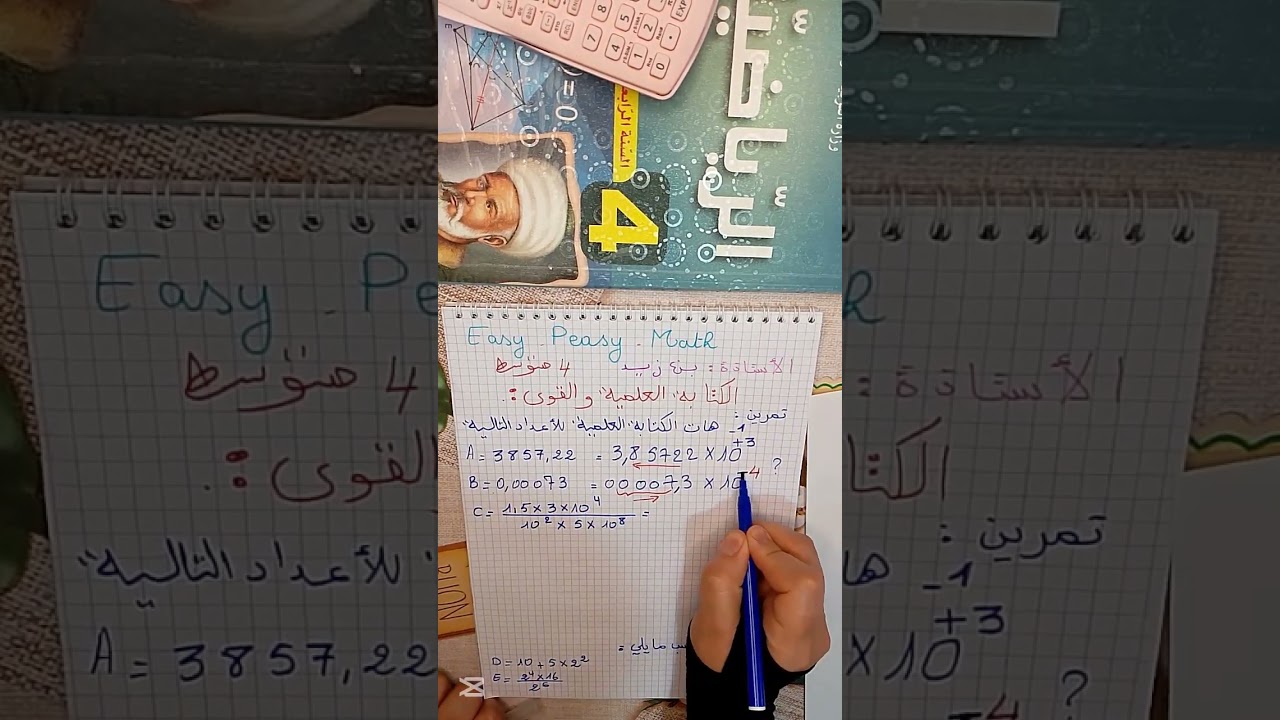 الرياضيات
السنة الرابعة
4
Easy-Peasy-Math
الأستاذة: بن زيد 4 متوسط
الكتابة العلمية والقوى:
تمرين:
1- هات الكتابة العلمية للأعداد التالية
A = 3857,22 = 3,85722 × 10⁺³
B = 0,00073 = 00 0007,3 × 10⁻⁴ ?
C = (1,5 × 3 × 10⁴)/(10² × 5 × 10⁸) =
ب مايلي:
D = 10 + 5 × 2²
E = (2⁴ × 16)/2⁶